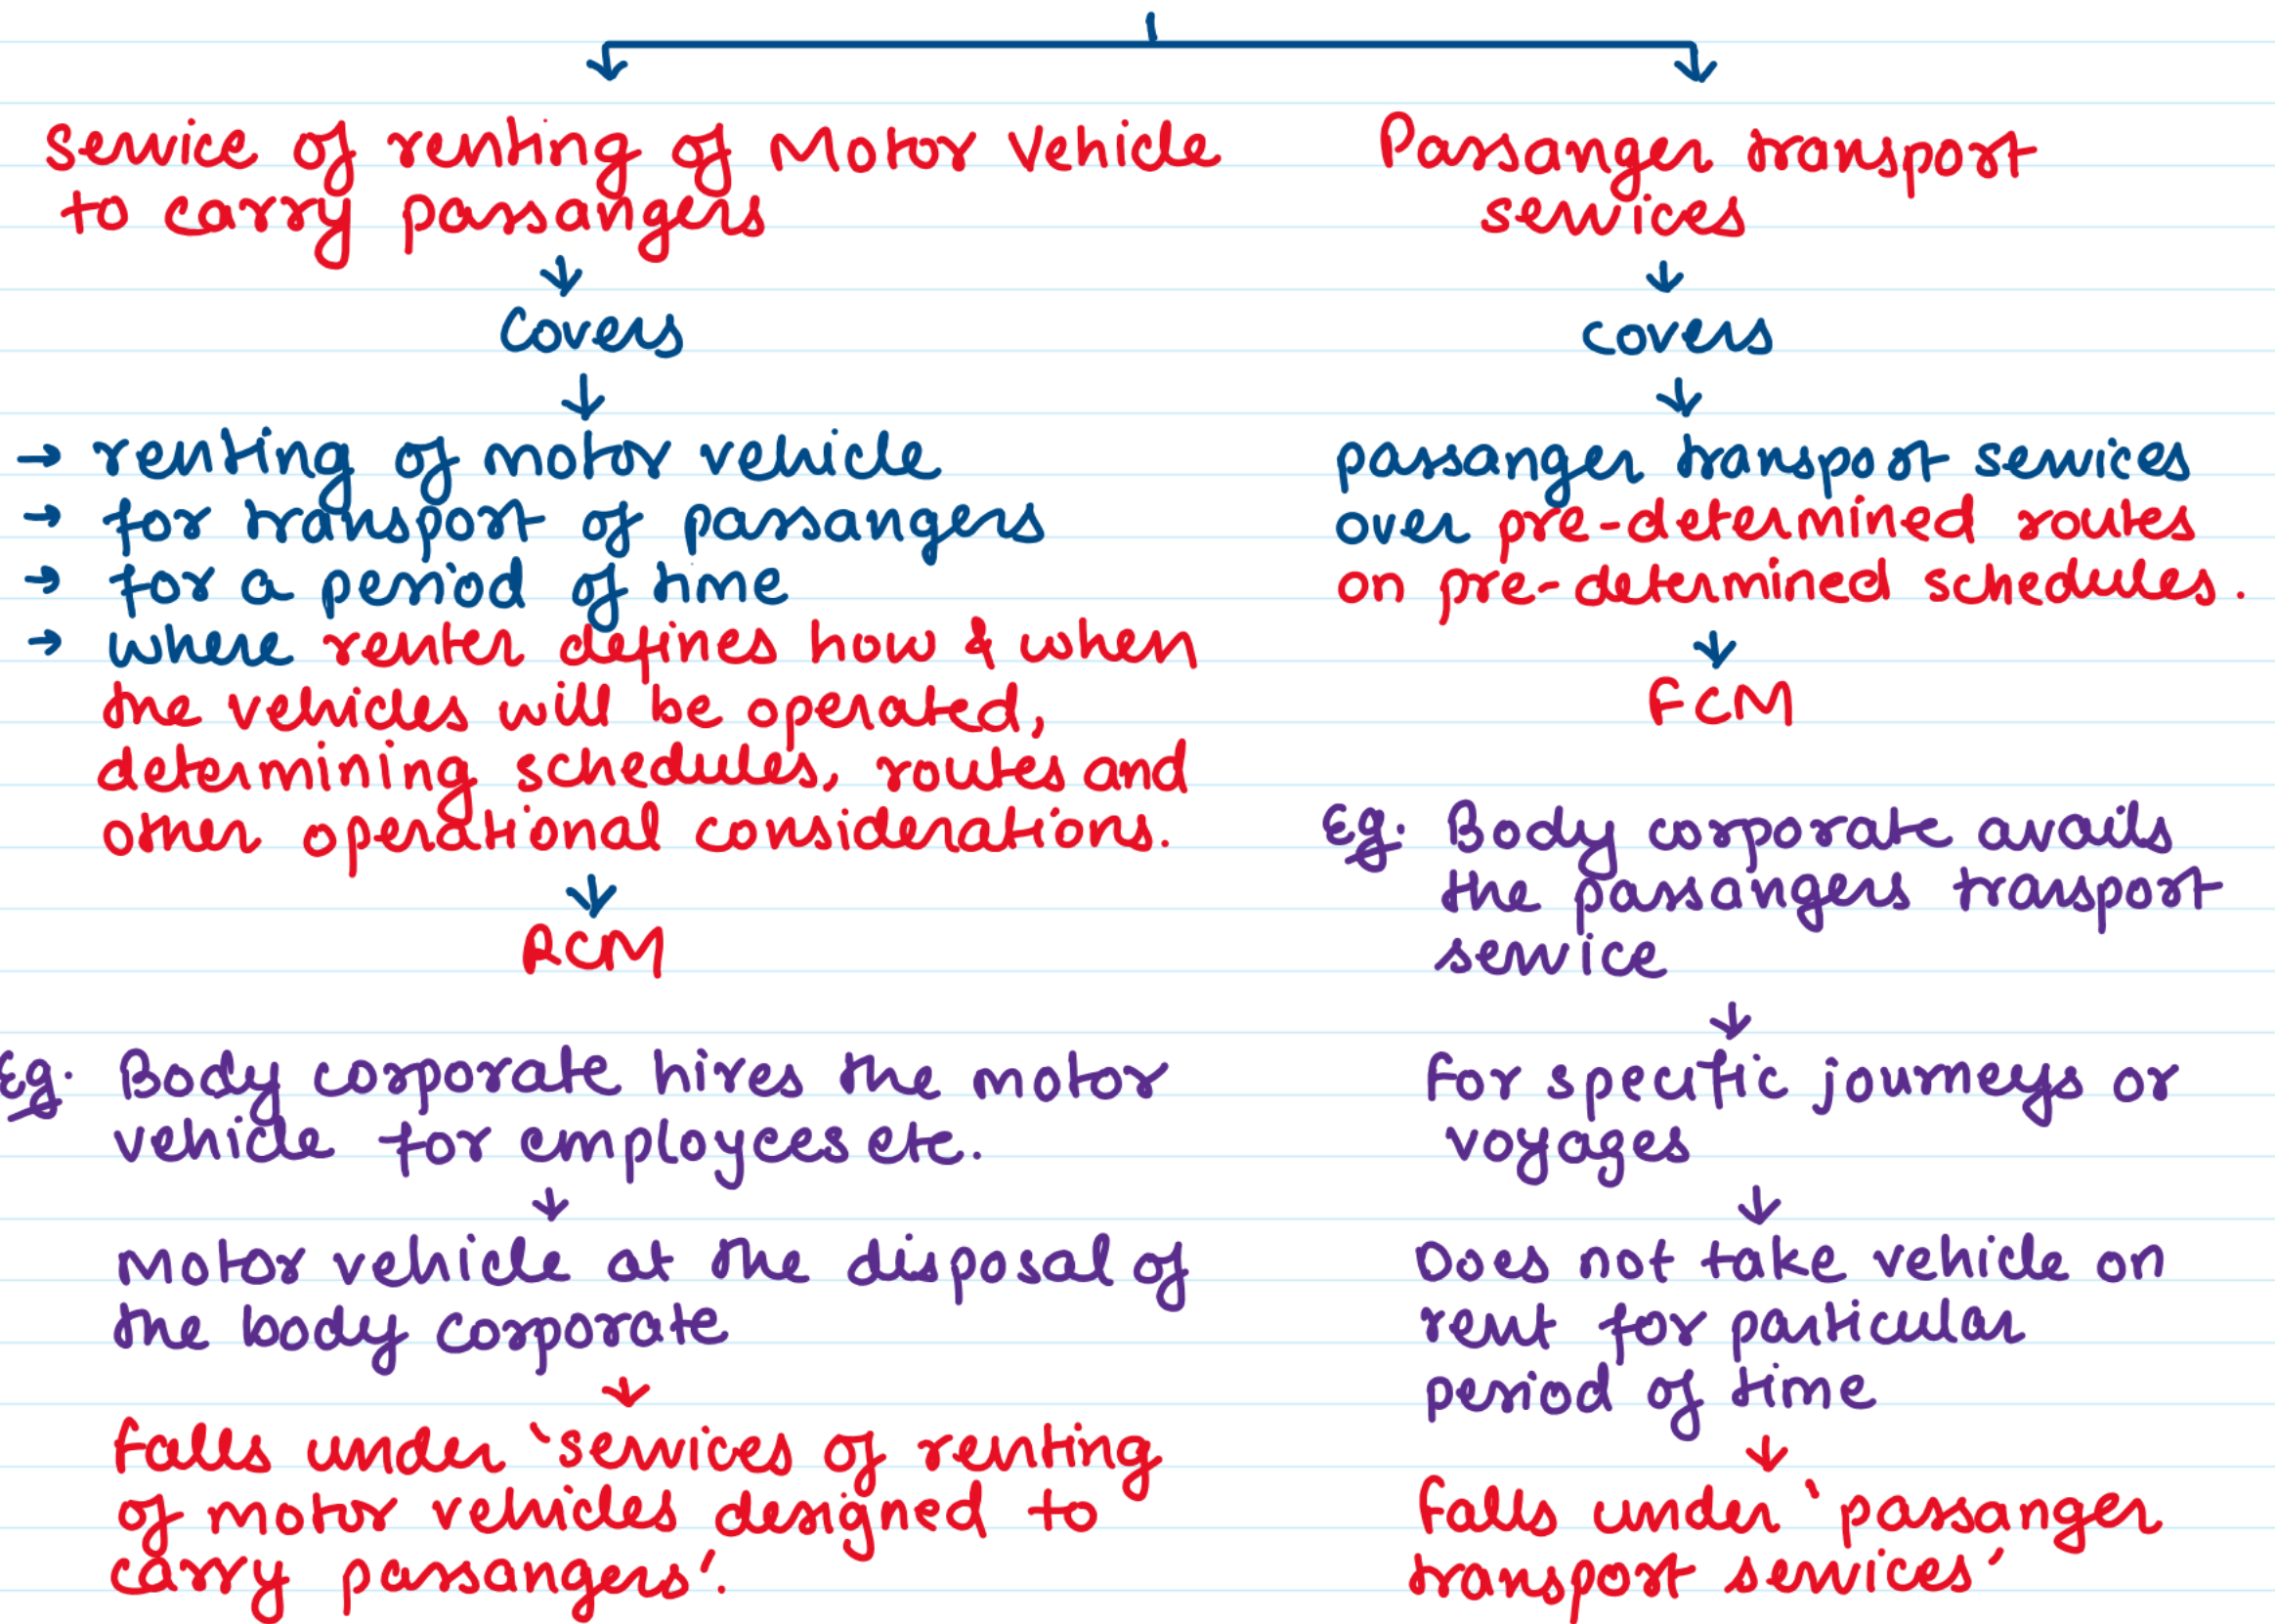 Service of renting of Motor Vehicle
to carry passangers
↓
Covers
↓
→ renting of motor vehicle
→ for transport of passangers
→ for a period of time
→ where renter defines how & when
the vehicles will be operated,
determining schedules, routes and
other operational considerations.
↓
RCM
Eg. Body corporate hires the motor
vehicle for employees etc.
↓
Motor vehicle at the disposal of
the body corporate
↓
Falls under 'services of renting
of motor vehicles designed to
carry passangers'.
Passanger transport
services
↓
covers
↓
passanger transport services
over pre-determined routes
on pre-determined schedules.
↓
FCM
Eg. Body corporate avails
the passangers transport
service
↓
For specific journeys or
voyages
↓
Does not take vehicle on
rent for particular
period of time
↓
Falls under 'passanger
transport services'